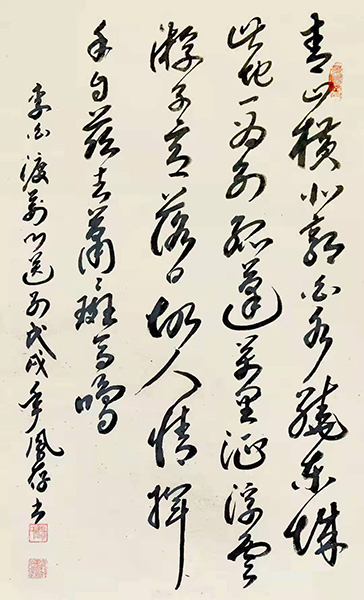 青山横北郭白水绕东城
此地一为别孤蓬万里征浮云
游子意落日故人情挥
手自兹去萧々斑马鸣
李白渡荆门送别戊戌年凤存书